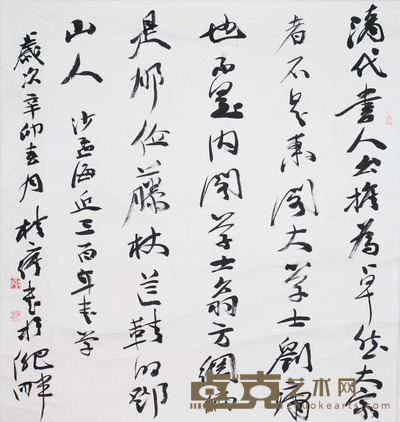 清代書人公推為卓然大家
者不是東閣大學士劉墉
也不是内閣學士翁方綱而
是那位藤杖芒鞋的鄧
山人 沙孟海近三百年書學
歲次辛卯春月 書於 畔
卓克艺术网